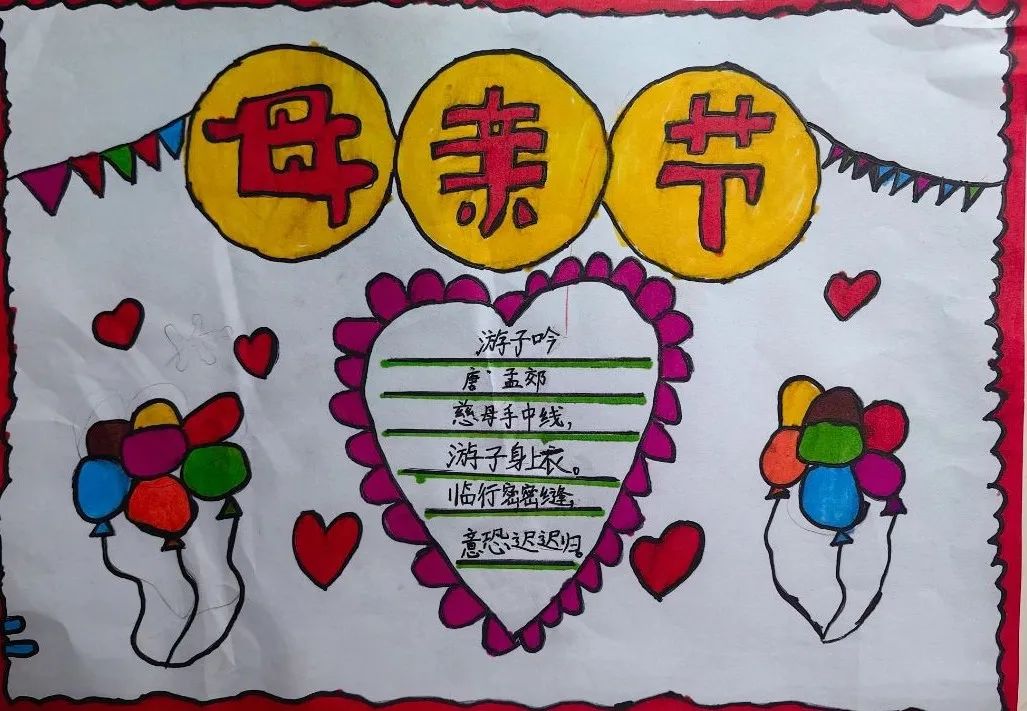 母亲节
游子吟
唐·孟郊
慈母手中线，
游子身上衣。
临行密密缝，
意恐迟迟归。